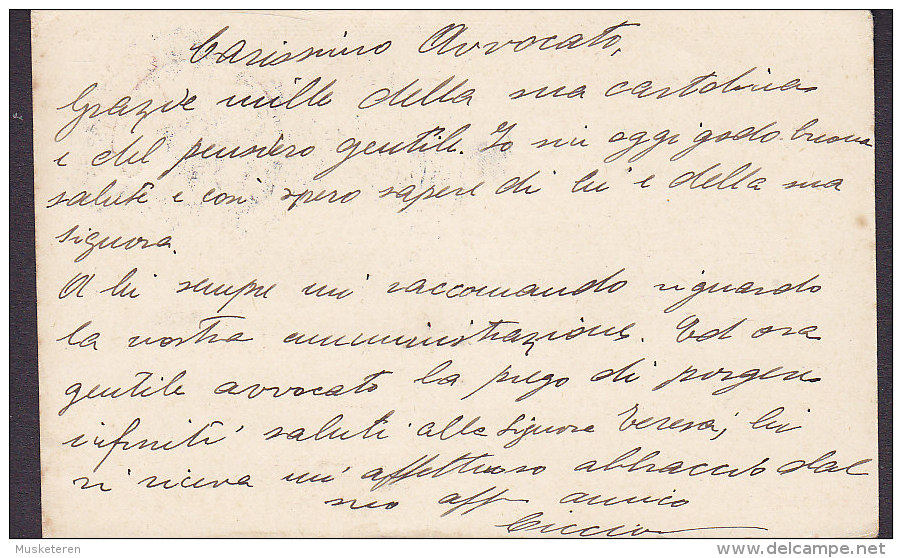 Carissimo Avvocato,
Grazie mille della sua cartolina
e del pensiero gentile. Io sin oggi godo buona
salute e così spero sapere di lei e della sua
Signora.
A lei sempre mi raccomando riguardo
la nostra amministrazione. Ed ora
gentile avvocato la prego di porgere
infiniti saluti alla Signora Teresa; lei
si riceva un affettuoso abbraccio dal
suo aff amico
Ciccio
Musketeren
delcampe.net